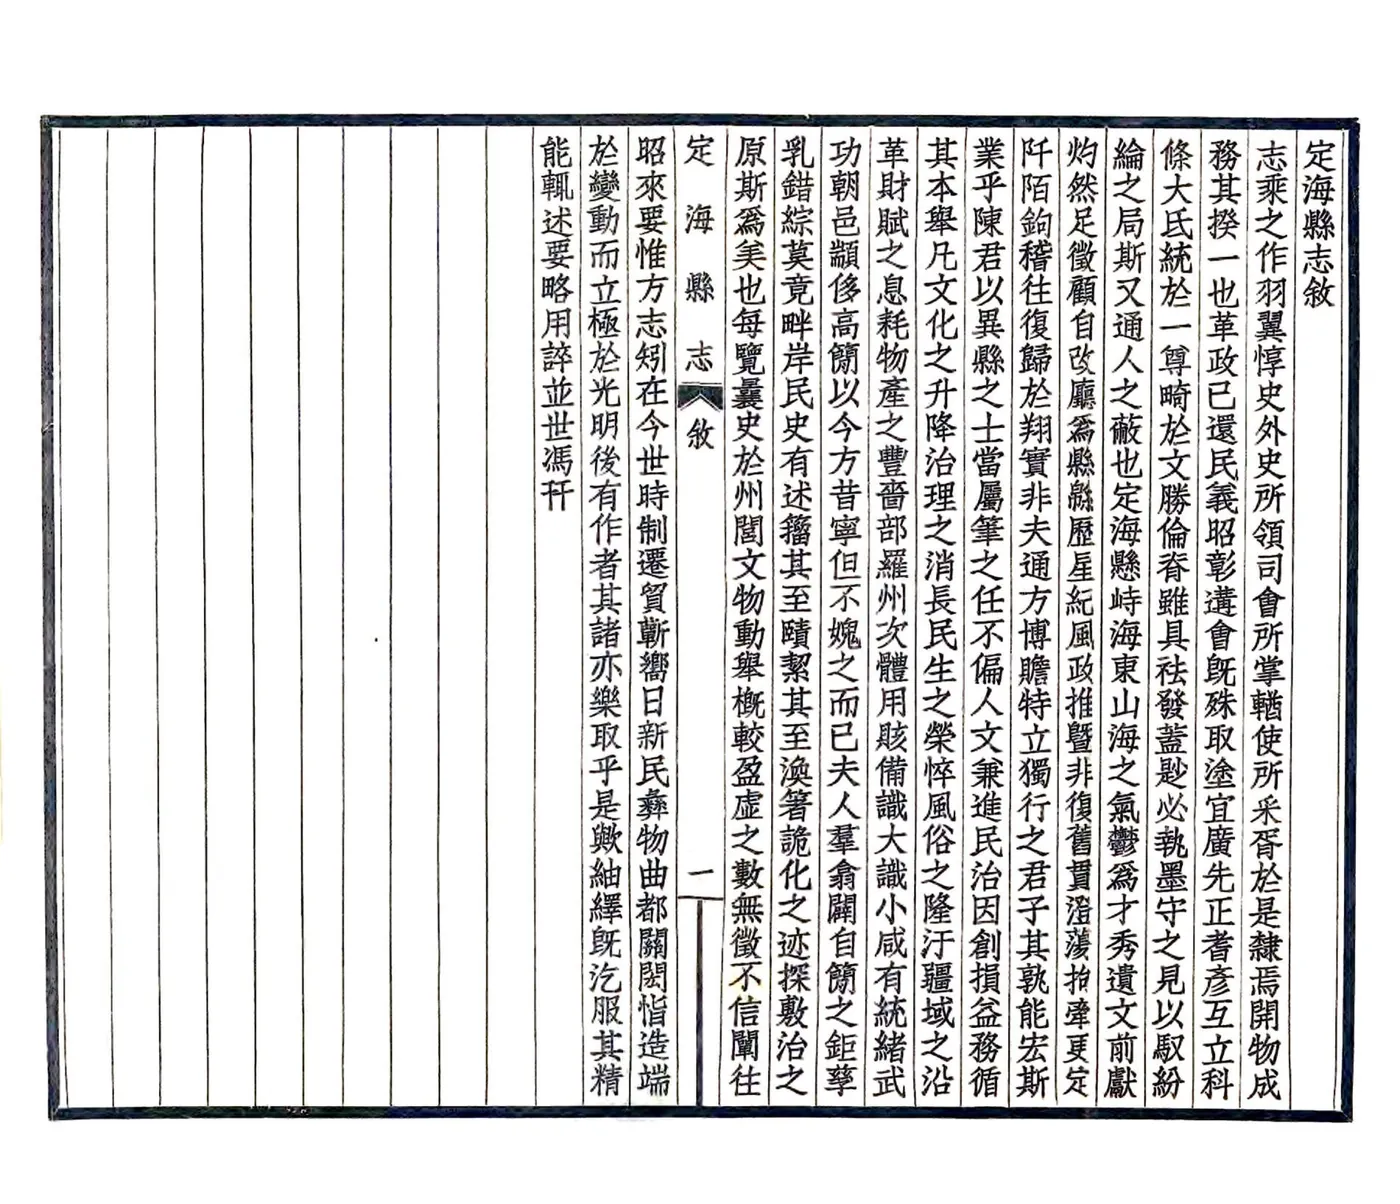 定海縣志敘
志乘之作羽翼惇史外史所領司會所掌輶使所采胥於是隸焉開物成
務其揆一也革政已還民義昭彰遘會旣殊取塗宜廣先正耆彥互立科
條大氐統於一尊畸於文勝倫脊雖具祛發蓋尟必執墨守之見以馭紛
綸之局斯又通人之蔽也定海懸峙海東山海之氣鬱爲才秀遺文前獻
灼然足徵顧自改廳爲縣緜歷星紀風政推暨非復舊貫澄蕩抬犖更定
阡陌鉤稽往復歸於翔實非夫通方博贍特立獨行之君子其孰能宏斯
業乎陳君以異縣之士當屬筆之任不偏人文兼進民治因創損益務循
其本舉凡文化之升降治理之消長民生之榮悴風俗之隆汙疆域之沿
革財賦之息耗物產之豐嗇部羅州次體用賅備識大識小咸有統緒武
功朝邑顓侈高簡以今方昔寧但不媿之而已夫人羣翕闢自簡之鉅孳
乳錯綜莫竟畔岸民史有述籀其至賾絜其至渙箸詭化之迹探敷治之
原斯爲美也每覽曩史於州閭文物動舉槪較盈虛之數無徵不信闡往
定海縣志 敘 一
昭來要惟方志矧在今世時制遷貿蘄嚮日新民彝物曲都關閎恉造端
於變動而立極於光明後有作者其諸亦樂取乎是歟紬繹旣汔服其精
能輒述要略用誶並世馮幵